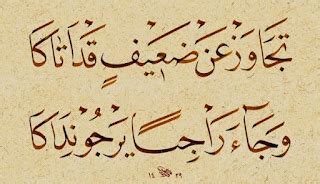 تَجَاوَزْ عَنْ ضَعِيفٍ قَدْ أَتَاكَا
وَجَآءَ رَاجِيًا يَرْجُو نِدَاكَا
١٤ ٣٩